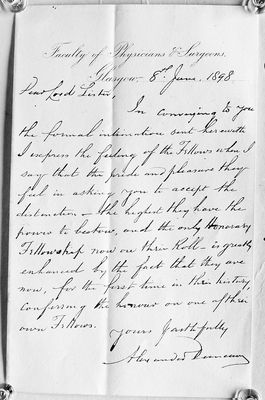 Faculty of Physicians & Surgeons,
Glasgow, 8th June, 1898
Dear Lord Lister,
In conveying to you
the formal intimation sent herewith
I express the feeling of the Fellows when I
say that the pride and pleasure they
feel in asking you to accept the
distinction – the highest they have the
power to bestow, and the only Honorary
Fellowship now on their Roll – is greatly
enhanced by the fact that they are
now, for the first time in their history,
conferring the honour on one of their
own Fellows.
Yours faithfully
Alexander Duncan